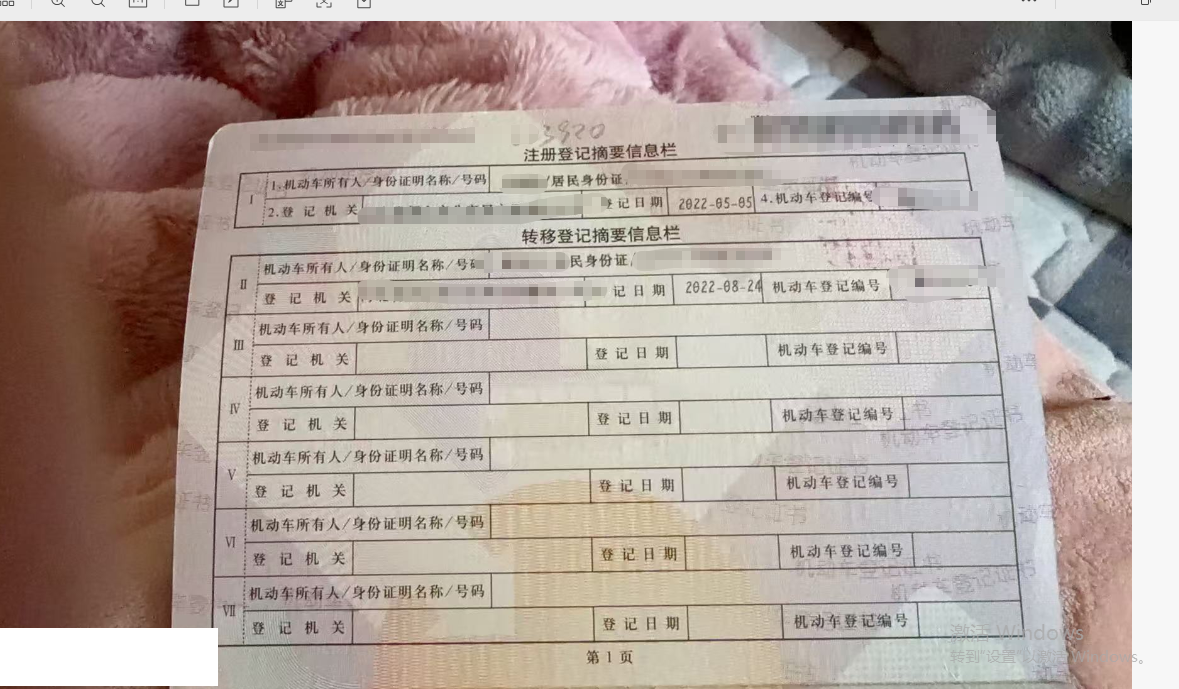 3920
注册登记摘要信息栏
Ⅰ 1.机动车所有人/身份证明名称/号码 /居民身份证
2.登记机关 登记日期 2022-05-05 4.机动车登记编号
转移登记摘要信息栏
Ⅱ 机动车所有人/身份证明名称/号码 民身份证
登记机关 记日期 2022-08-24 机动车登记编号
Ⅲ 机动车所有人/身份证明名称/号码
登记机关 登记日期 机动车登记编号
Ⅳ 机动车所有人/身份证明名称/号码
登记机关 登记日期 机动车登记编号
Ⅴ 机动车所有人/身份证明名称/号码
登记机关 登记日期 机动车登记编号
Ⅵ 机动车所有人/身份证明名称/号码
登记机关 登记日期 机动车登记编号
Ⅶ 机动车所有人/身份证明名称/号码
登记机关 登记日期 机动车登记编号
第1页
激活 Windows
转到"设置"以激活 Windows。